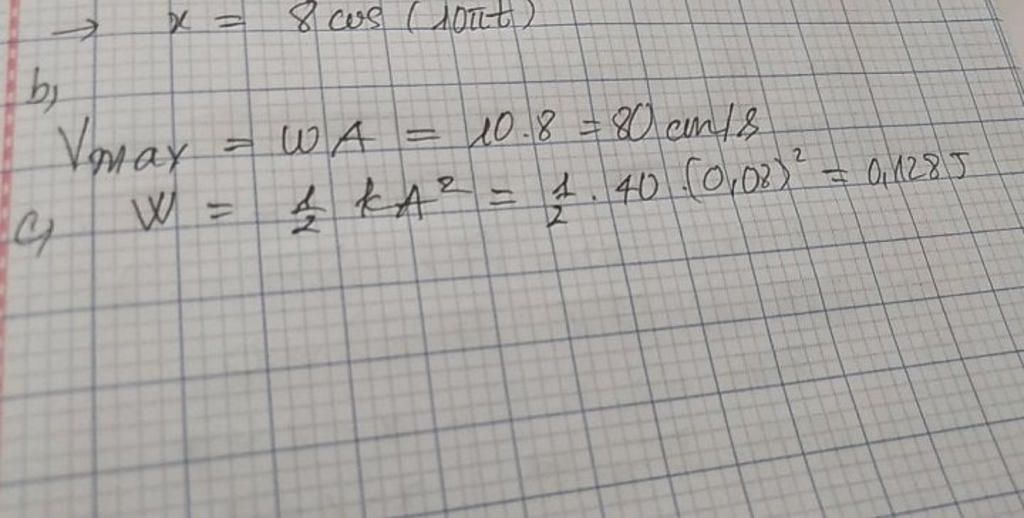 → x = 8 cos (10πt)
b,
Vmax = ωA = 10.8 = 80 cm/s
c, W = 1/2 kA² = 1/2 . 40 .(0,08)² = 0,128J